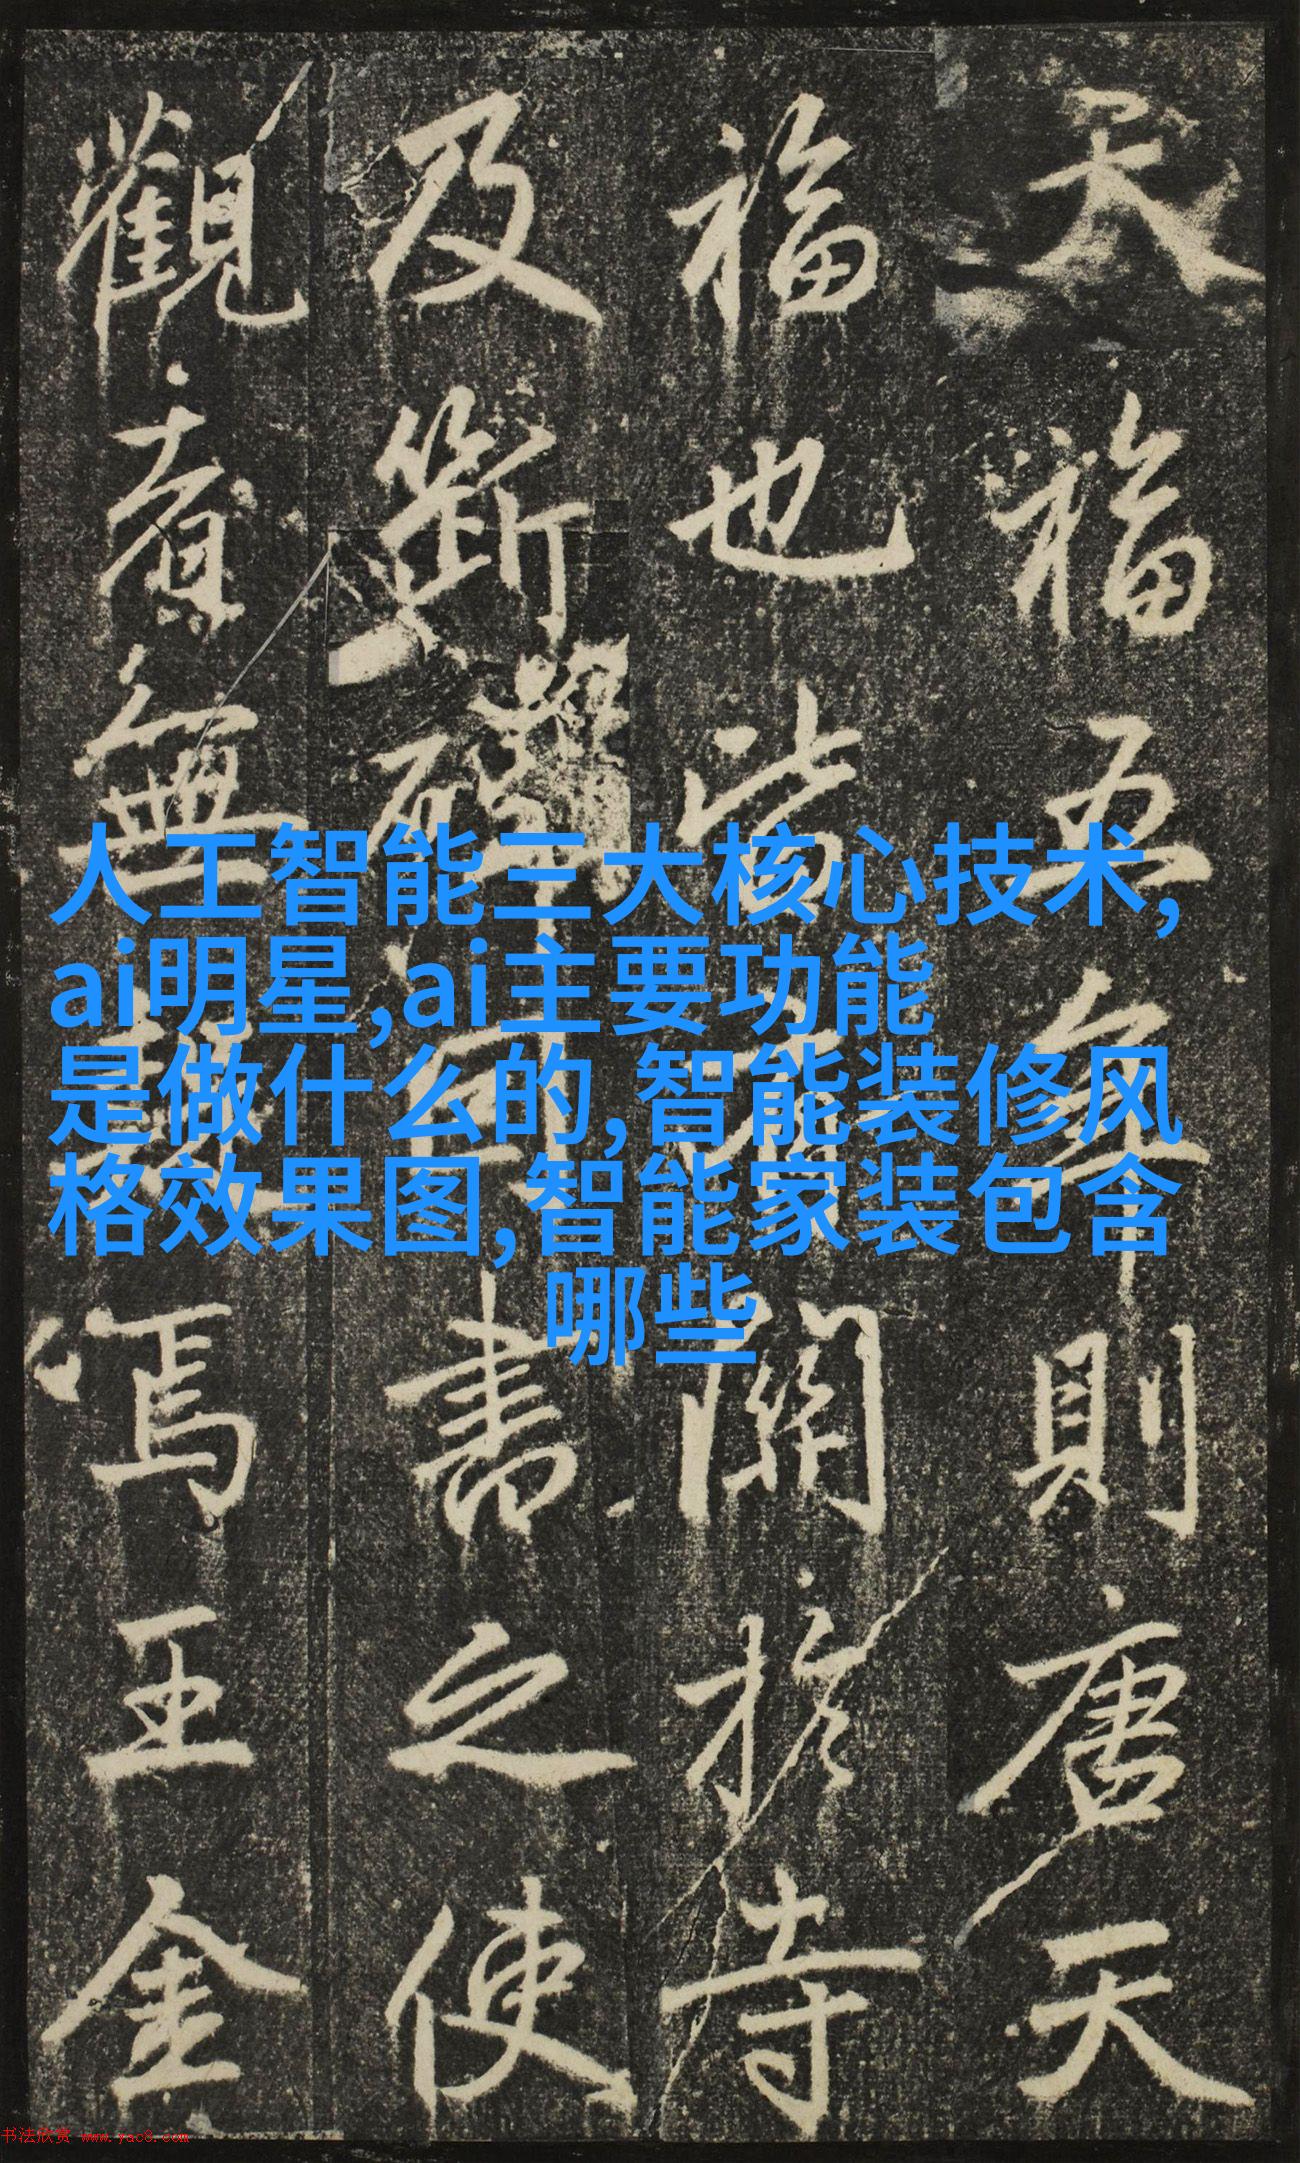 人工智能三大核心技术,
ai明星,ai主要功能
是做什么的,智能装修风
格效果图,智能家装包含
哪些
天福五年則唐天
福也關於寺
及斷碑書之使
觀者無焉王金
书法欣赏 www.yac8.com